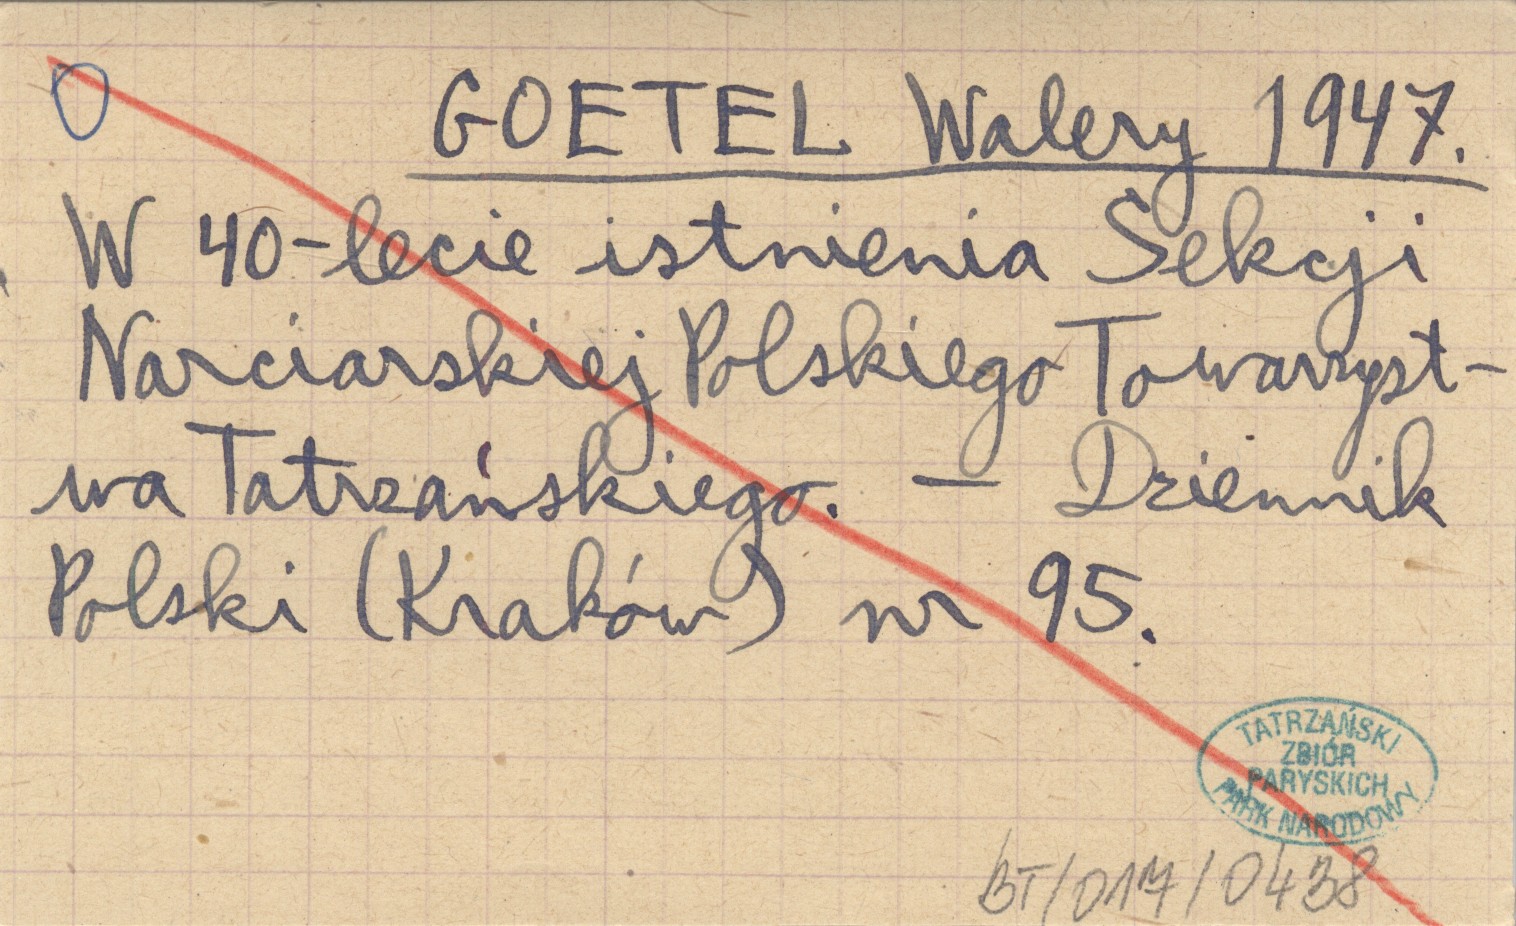 GOETEL Walery 1947.
W 40-lecie istnienia Sekcji
Narciarskiej Polskiego Towarzyst-
wa Tatrzańskiego. — Dziennik
Polski (Kraków) nr 95.
TATRZAŃSKI
ZBIÓR
PARYSKICH
PARK NARODOWY
BT/017/0438